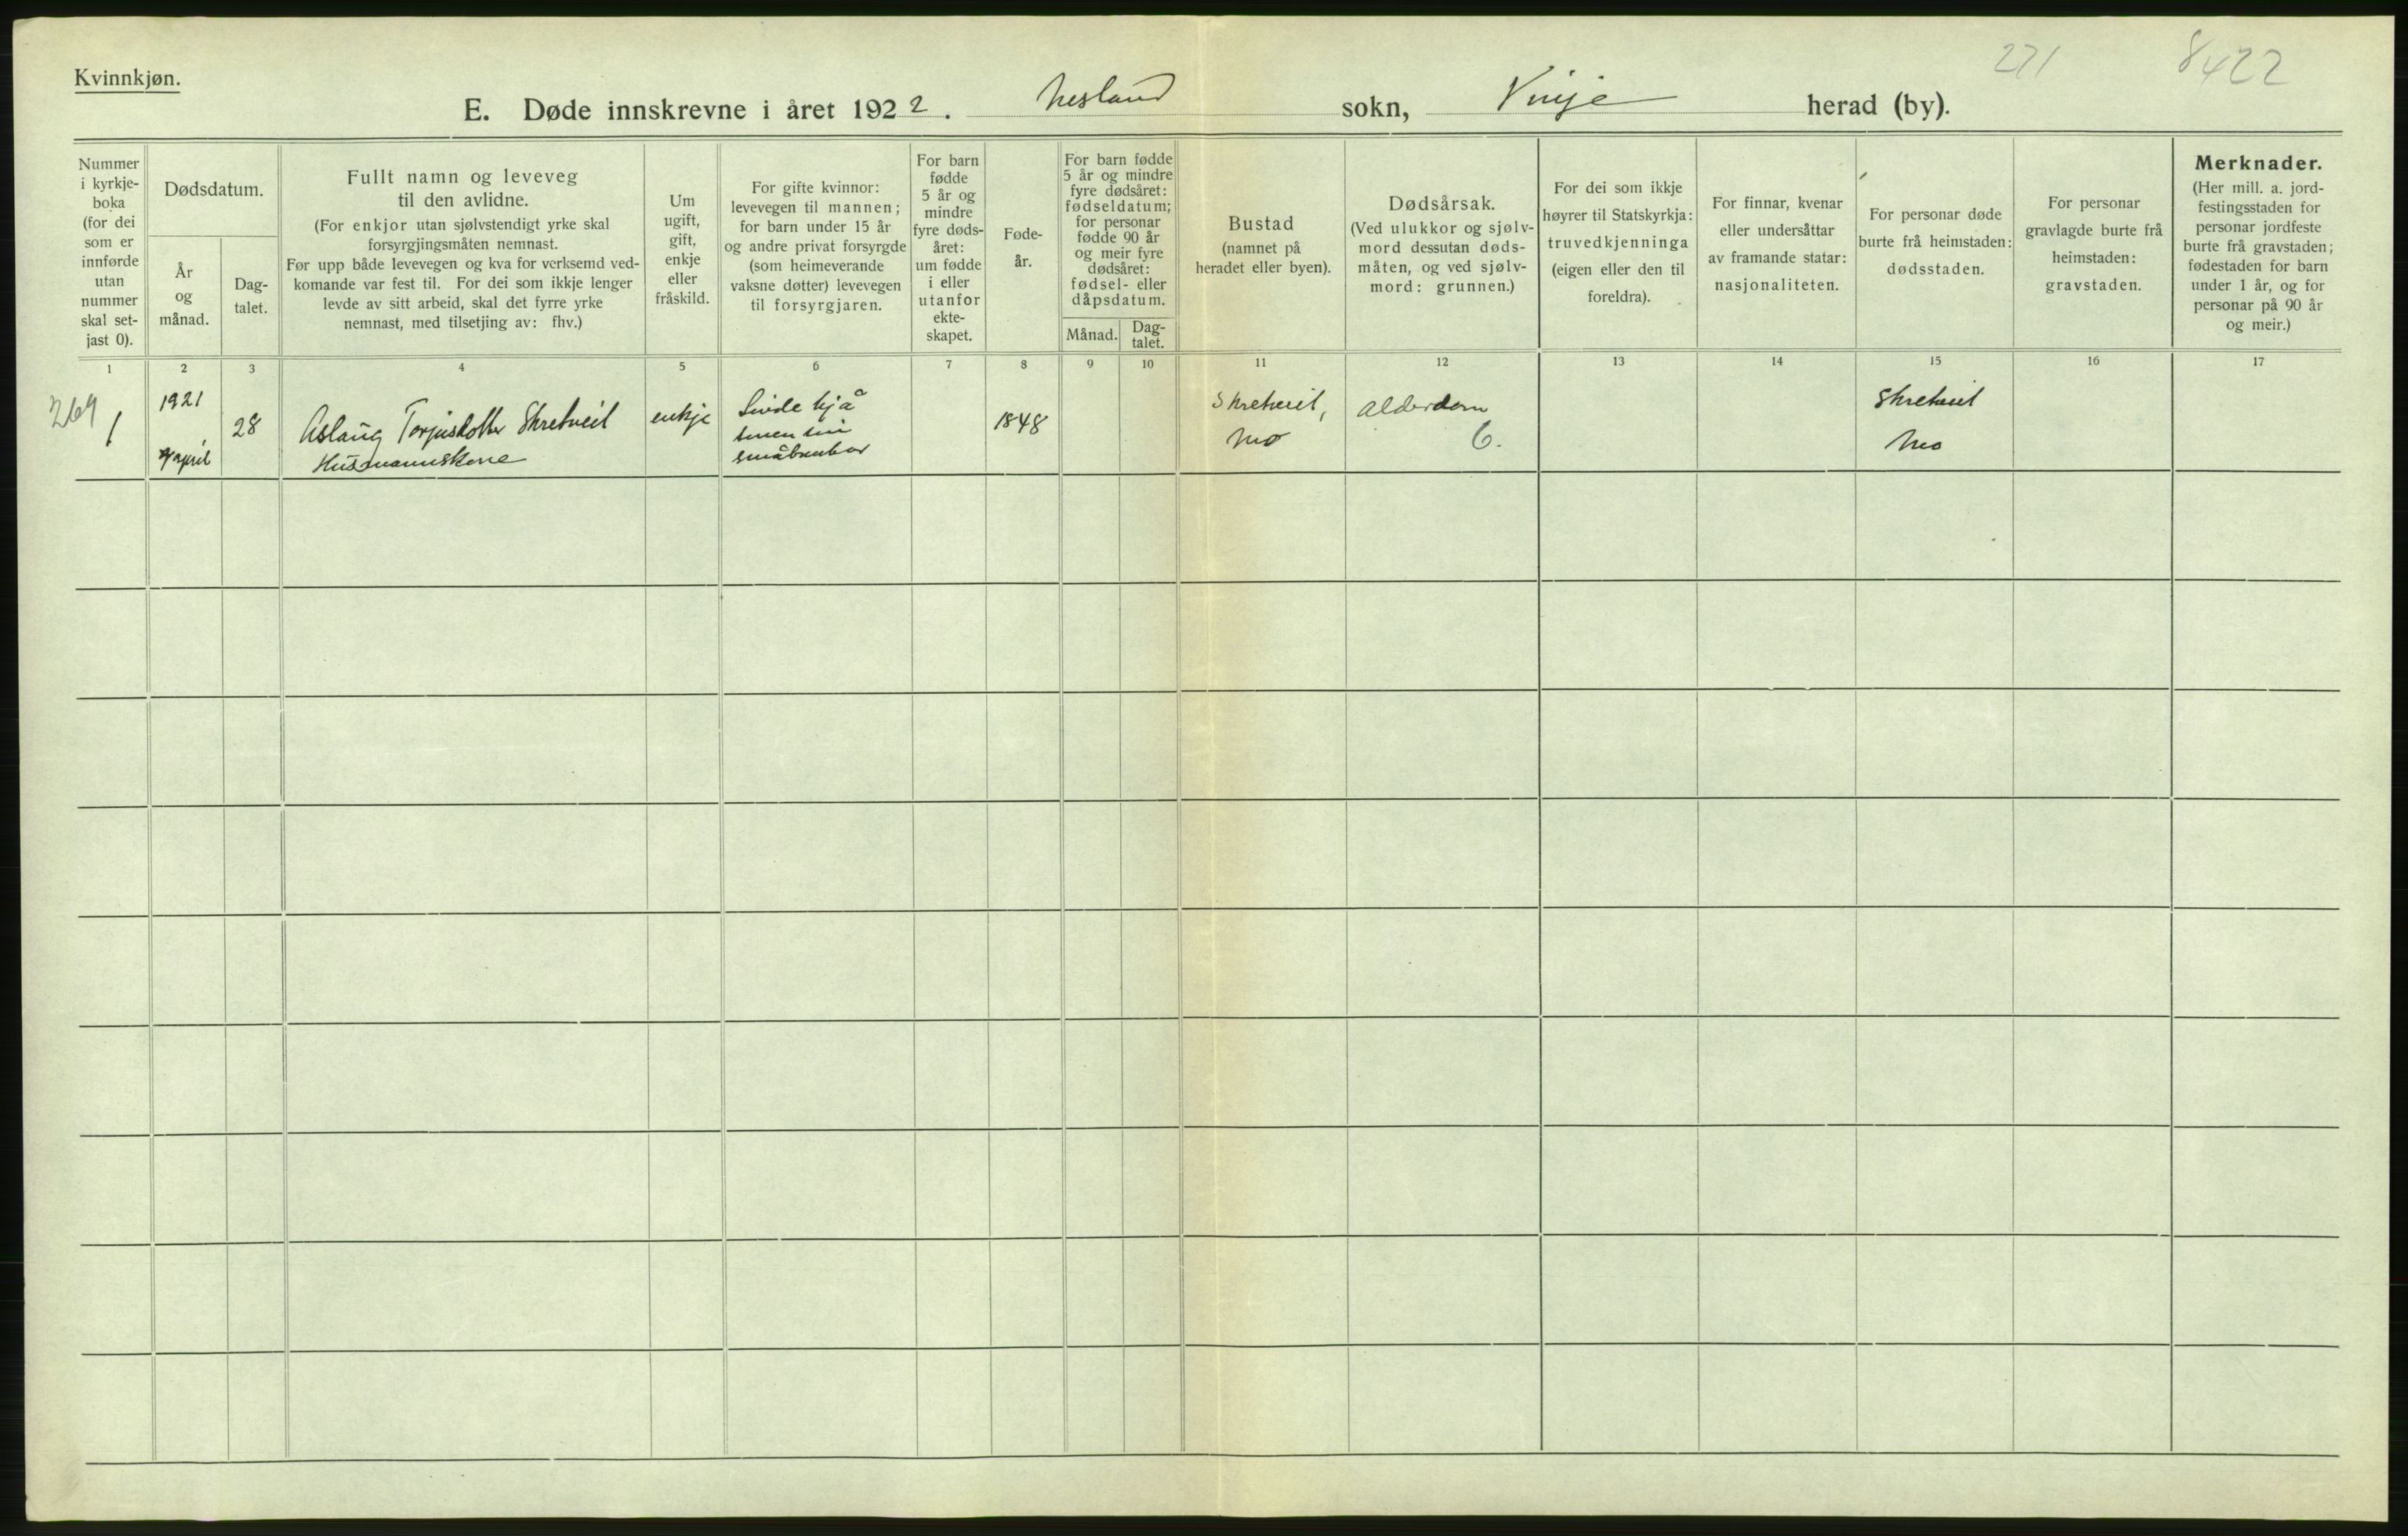 Kvinnkjøn.
271 8422
E. Døde innskrevne i året 1922. Nesland sokn, Vinje herad (by).
Nummer
i kyrkje-
boka
(for dei
som er
innførde
utan
nummer
skal set-
jast 0).
Dødsdatum.
År
og
månad.
Dag-
talet.
Fullt namn og leveveg
til den avlidne.
(For enkjor utan sjølvstendigt yrke skal
forsyrgjingsmåten nemnast.
Før upp både levevegen og kva for verksemd ved-
komande var fest til. For dei som ikkje lenger
levde av sitt arbeid, skal det fyrre yrke
nemnast, med tilsetjing av: fhv.)
Um
ugift,
gift,
enkje
eller
fråskild.
For gifte kvinnor:
levevegen til mannen;
for barn under 15 år
og andre privat forsyrgde
(som heimeverande
vaksne døtter) levevegen
til forsyrgjaren.
For barn
fødde
5 år og
mindre
fyre døds-
året:
um fødde
i eller
utanfor
ekte-
skapet.
Føde-
år.
For barn fødde
5 år og mindre
fyre dødsåret:
fødseldatum;
for personar
fødde 90 år
og meir fyre
dødsåret:
fødsel- eller
dåpsdatum.
Månad.
Dag-
talet.
Bustad
(namnet på
heradet eller byen).
Dødsårsak.
(Ved ulukkor og sjølv-
mord dessutan døds-
måten, og ved sjølv-
mord: grunnen.)
For dei som ikkje
høyrer til Statskyrkja:
truvedkjenninga
(eigen eller den til
foreldra).
For finnar, kvenar
eller undersåttar
av framande statar:
nasjonaliteten.
For personar døde
burte frå heimstaden:
dødsstaden.
For personar
gravlagde burte frå
heimstaden:
gravstaden.
Merknader.
(Her mill. a. jord-
festingsstaden for
personar jordfeste
burte frå gravstaden;
fødestaden for barn
under 1 år, og for
personar på 90 år
og meir.)
1 2 3 4 5 6 7 8 9 10 11 12 13 14 15 16 17
269
1
1921
april
28
Aslaug Torjusdotter Skretveit
Husmannskone
enkje
Livde hjå
sonen sin
småbrukar
1848
Skretveit,
Mo
Alderdom
6.
Skretveit
Mo